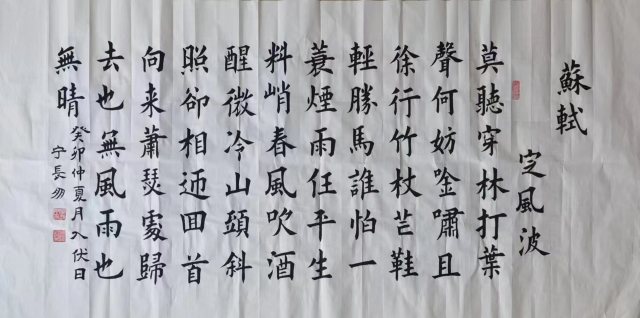 蘇軾
定風波
莫聽穿林打葉
聲何妨唫嘯且
徐行竹杖芒鞋
輕勝馬誰怕一
蓑煙雨任平生
料峭春風吹酒
醒微冷山頭斜
照卻相迎回首
向来蕭瑟處歸
去也無風雨也
無晴
癸卯仲夏月入伏日
宁長